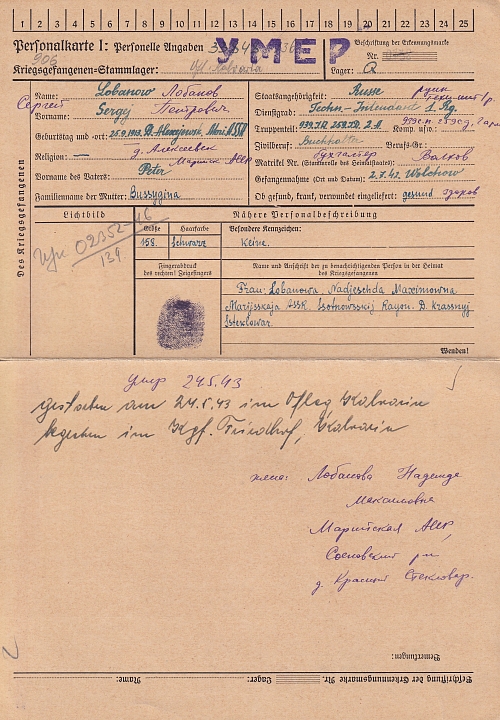 1 2 3 4 5 6 7 8 9 10 11 12 13 14 15 16 17 18 19 20 21 22 23 24 25
Personalkarte I: Personelle Angaben
УМЕР
Beschriftung der Erkennungsmarke
Nr.
906
Kriegsgefangenen-Stammlager: Ofl. Kalvaria
Lager: Q
Des Kriegsgefangenen
Name: Lobanow Лобанов
Сергей
Vorname: Sergej Петрович
Geburtstag und -ort: 25.9.1913. D. Alexejewsk, Mari ASSR
д. Алексеевск
Religion: — Марийск АССР
Vorname des Vaters: Peter
Familienname der Mutter: Bussygina
Staatsangehörigkeit: Russe русск
Dienstgrad: Techn.-Intendant 1. Rg.
Truppenteil: Komp. usw.:
Zivilberuf: Buchhalter Berufs-Gr.:
бухгалтер
Matrikel Nr. (Stammrolle des Heimatstaates): Волхов
Gefangennahme (Ort und Datum): 2.7.42. Wolchow
Ob gesund, krank, verwundet eingeliefert: gesund здоров
Lichtbild
Nähere Personalbeschreibung
Größe Haarfarbe Besondere Kennzeichen:
158. Schwarz Keine.
02352-46
134
Fingerabdruck
des rechten! Zeigefingers
Name und Anschrift der zu benachrichtigenden Person in der Heimat
des Kriegsgefangenen
Frau: Lobanowa, Nadjeschda Maximowna
Marijsskaja ASSR. Ssotnowsskij Rayon. D. Krassnyj
Ssteklowar.
Wenden!
умер 24.5.43
gestorben am 24.5.43 im Oflag Kalvaria
begraben im Kgf. Friedhof, Kalvaria
жена: Лобанова Надежда
Максимовна
Марийская АССР,
Сосновский р-н
д. Красный Стекловар.
Bemerkungen:
Beschriftung der Erkennungsmarke Nr. Lager: Name: